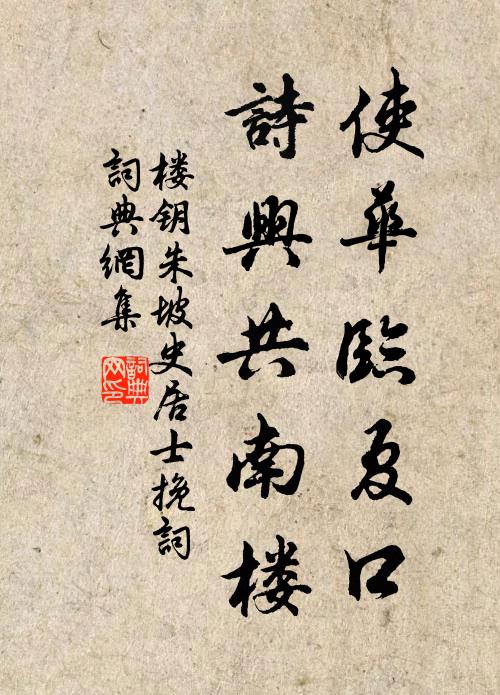 使華臨夏口
詩興共南楼
楼钥朱坡史居士挽詞
詞典網集
詞典網印